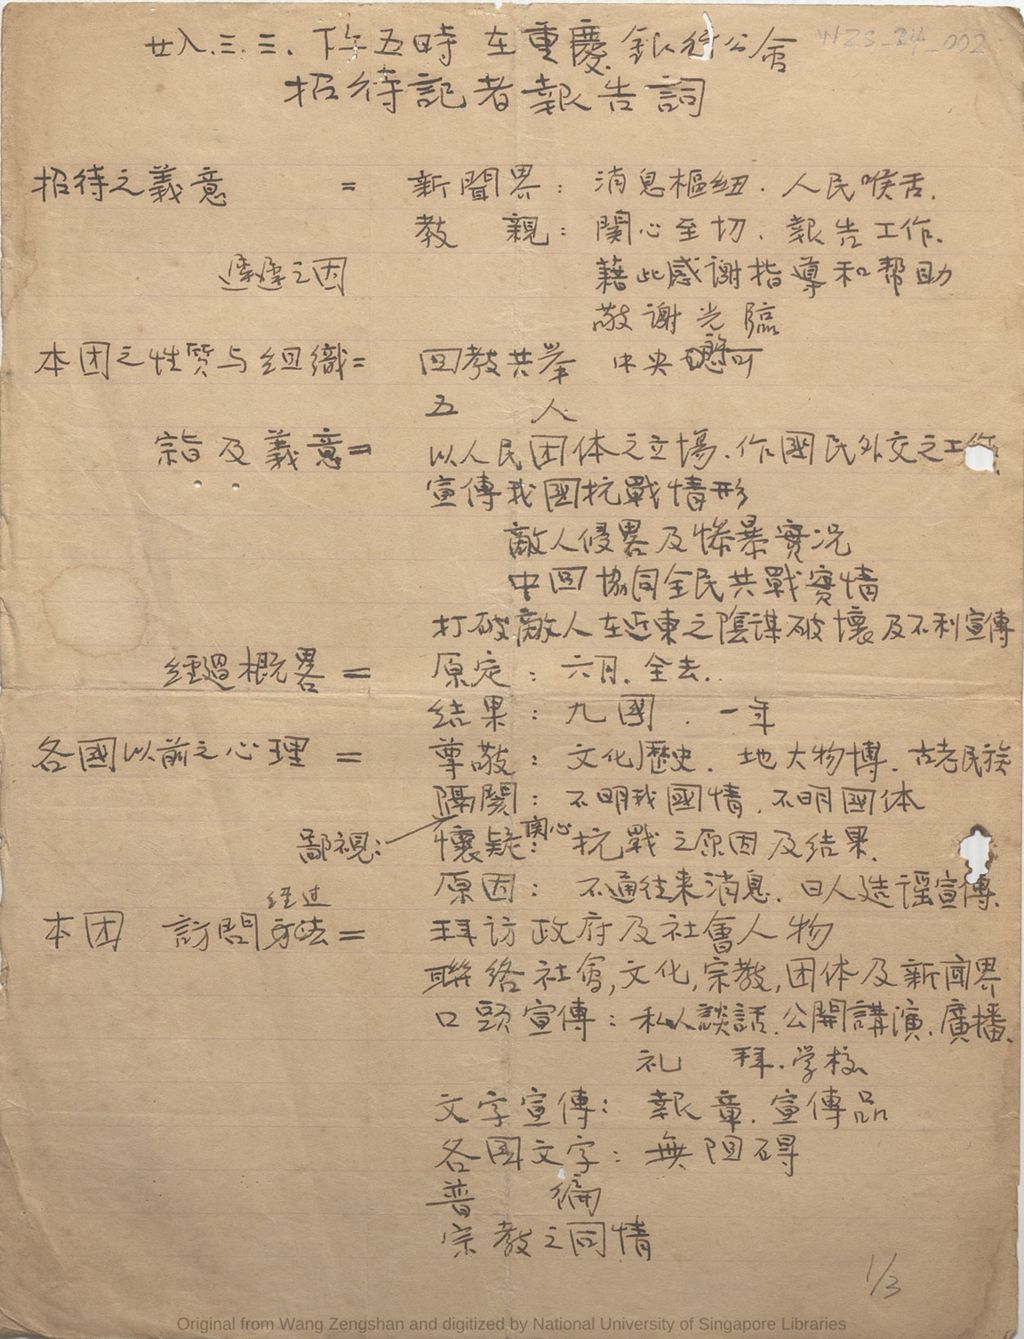 廿八.三.三. 下午五時 在重慶 銀行公會
WZS_24_002
招待記者報告詞
招待之義意 = 新聞界: 消息樞紐. 人民喉舌.
教 親: 関心至切. 報告工作.
遲遲之因 藉此感谢指導和帮助
敬谢光臨
本团之性质与组織= 回教共举 中央
五 人
宗旨及義意= 以人民团体之立場. 作國民外交之工作.
宣傳我國抗戰情形
敵人侵畧及惨暴實况
中回協同全民共戰實情
打破敵人在近東之陰謀破壞及不利宣傳
经過概畧 = 原定: 六月. 全去..
结果: 九國. 一年
各國以前之心理 = 尊敬: 文化歷史. 地大物博. 古老民族
隔閡: 不明我國情. 不明國体
鄙視: 懷疑: 関心 抗戰之原因及结果.
原因: 不通往来消息. 日人造謡宣傳.
本团 訪問方法 经过 = 拜访政府及社會人物
聯络社會,文化,宗教,团体及新闻界
口頭宣傳: 私人談話. 公開講演. 廣播.
礼 拜. 学校
文字宣傳: 報章. 宣傳品
各國文字: 無阻碍
普 徧
宗教之同情
1/3
Original from Wang Zengshan and digitized by National University of Singapore Libraries